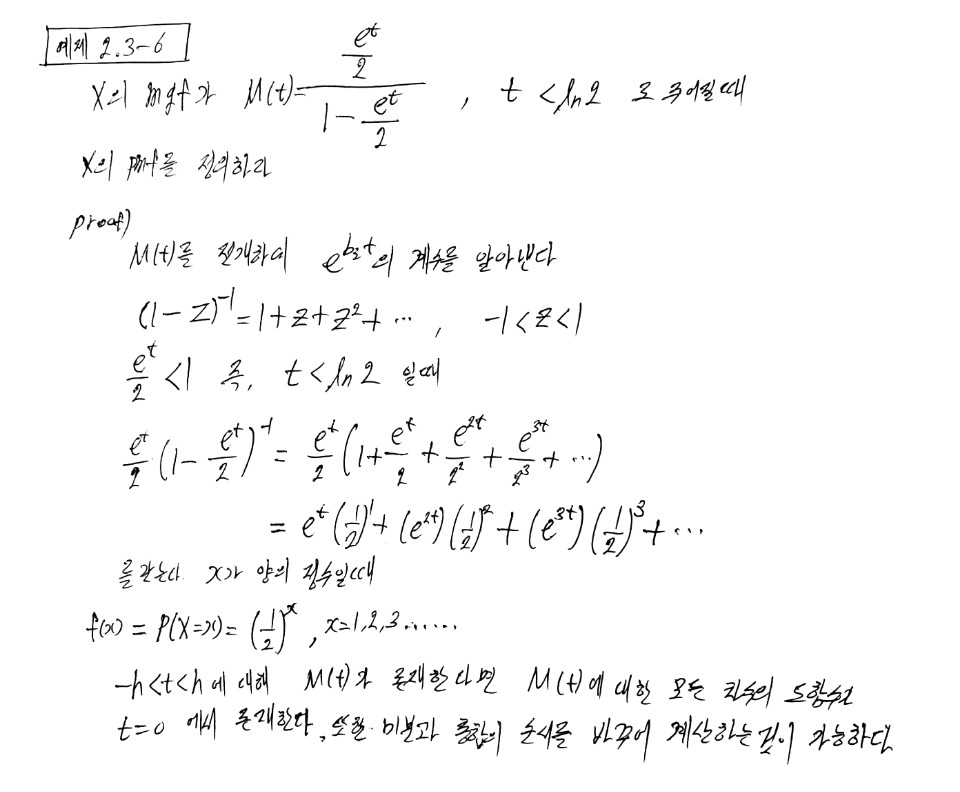 예제 2.3-6
X의 mgf가 M(t)=(e^t/2)/(1-e^t/2) , t<ln2 로 주어질때
X의 pmf를 정의하라
proof)
M(t)를 전개하여 e^{b_i t}의 계수를 알아낸다
(1-Z)^{-1}=1+z+z^2+ ⋯ , -1<z<1
e^t/2 <1 즉, t<ln2 일때
e^t/2 (1-e^t/2)^{-1} = e^t/2 (1+e^t/2+e^{2t}/2^2+e^{3t}/2^3+⋯)
= e^t(1/2)^1+(e^{2t})(1/2)^2+(e^{3t})(1/2)^3+⋯
를 갖는다. x가 양의 정수일때
f(x) = P(X=x)= (1/2)^x , x=1,2,3......
-h<t<h에 대해 M(t)가 존재한다면 M(t)에 대한 모든 차수의 도함수가
t=0 에서 존재한다. 또한 미분과 통합의 순서를 바꾸어 계산하는것이 가능하다.